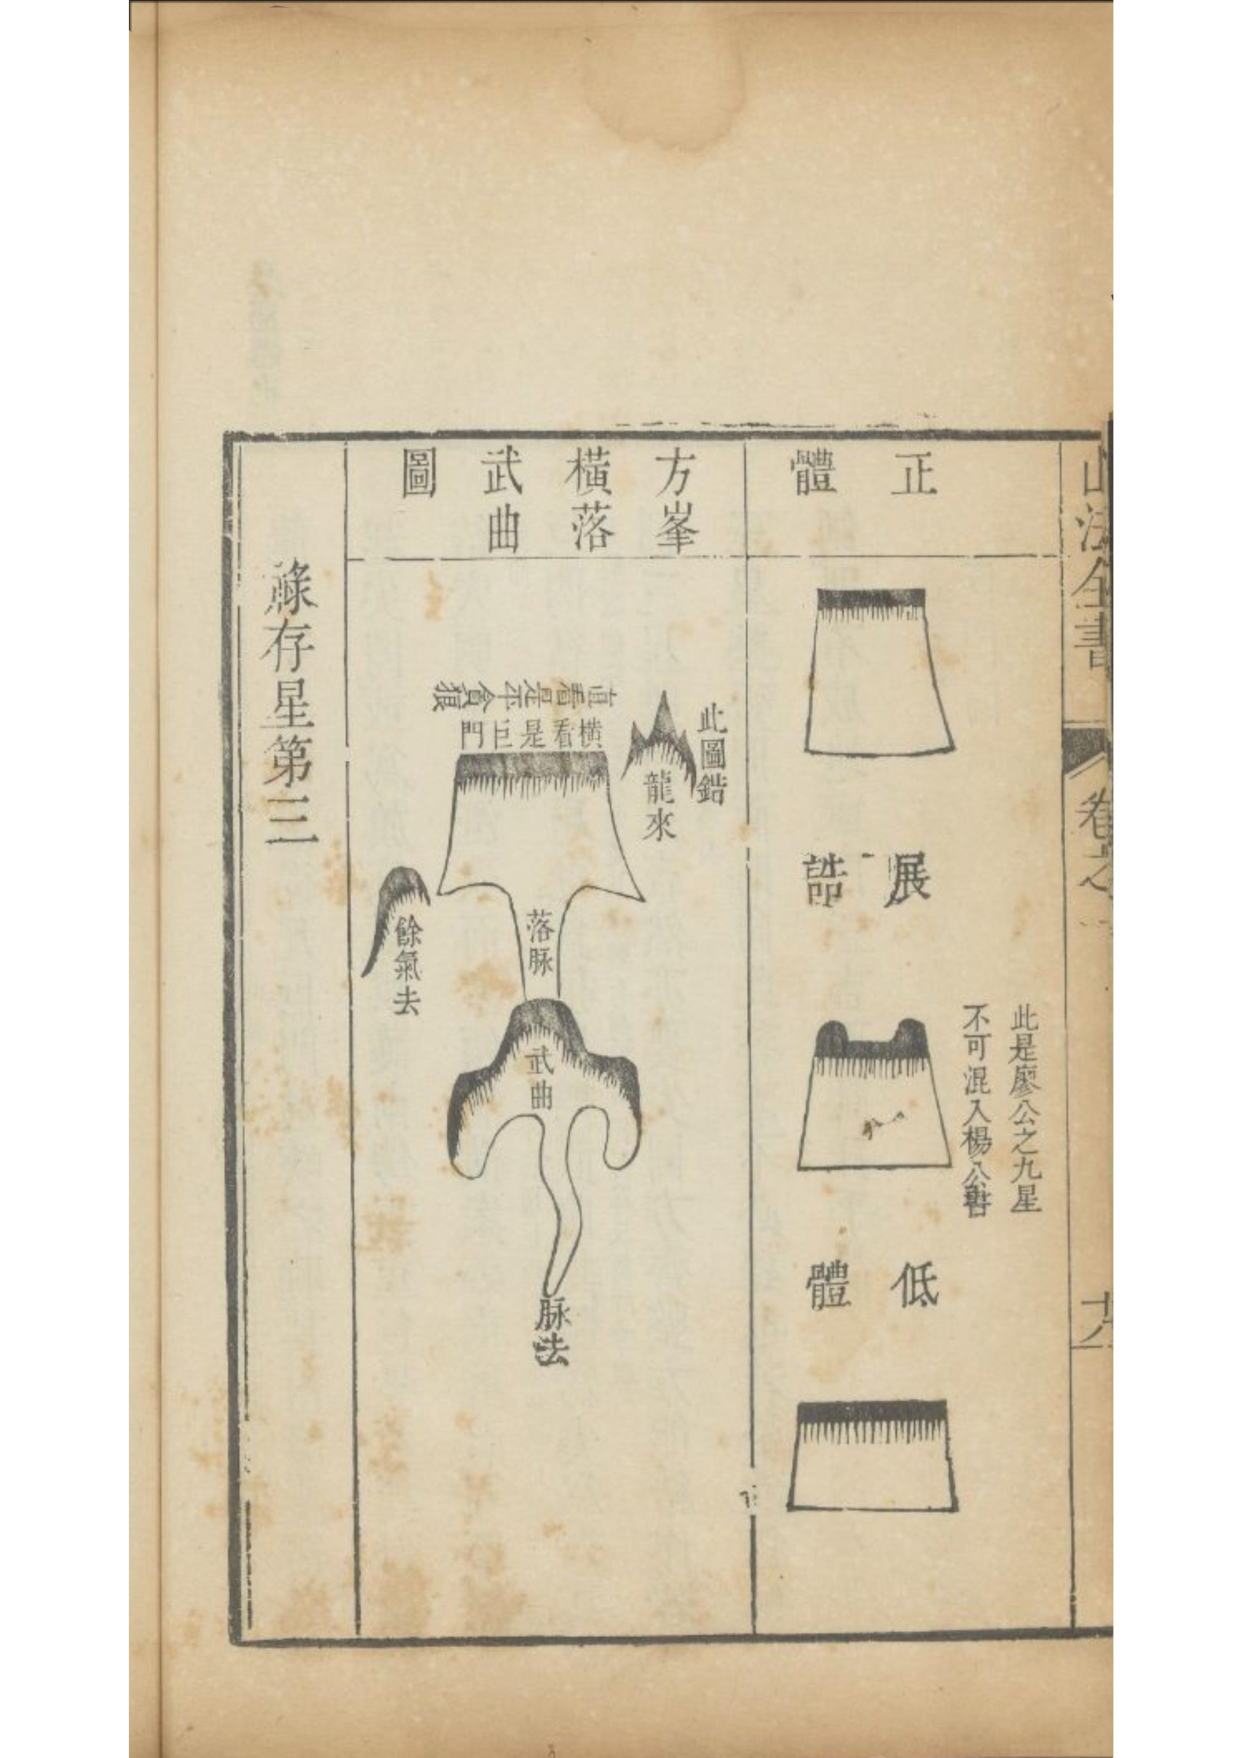 山法全書
卷之一
正體
展誥
此是廖公之九星
不可混入楊公書
低體
方峯
橫落
武曲
圖
此圖錯
龍來
橫看是巨門
直看是平貪狼
落脉
武曲
脉去
餘氣去
祿存星第三